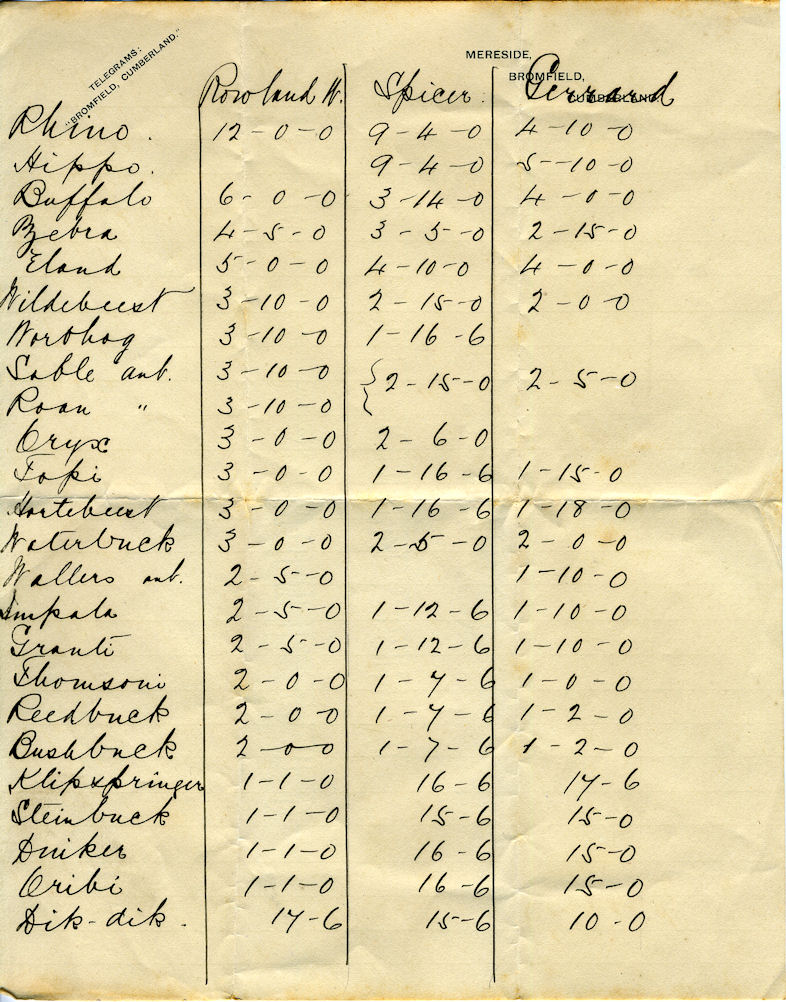 TELEGRAMS:
"BROMFIELD, CUMBERLAND."
MERESIDE,
BROMFIELD,
CUMBERLAND.
Rowland W. Spicer. Gerrard
Rhino. 12-0-0 9-4-0 4-10-0
Hippo. 9-4-0 5-10-0
Buffalo 6-0-0 3-14-0 4-0-0
Zebra 4-5-0 3-5-0 2-15-0
Eland 5-0-0 4-10-0 4-0-0
Wildebeest 3-10-0 2-15-0 2-0-0
Worthog 3-10-0 1-16-6
Sable ant. 3-10-0 { 2-15-0 2-5-0
Roan " 3-10-0
Oryx 3-0-0 2-6-0
Topi 3-0-0 1-16-6 1-15-0
Hartebeest 3-0-0 1-16-6 1-18-0
Waterbuck 3-0-0 2-5-0 2-0-0
Wallers ant. 2-5-0 1-10-0
Impala 2-5-0 1-12-6 1-10-0
Granti 2-5-0 1-12-6 1-10-0
Thomsoni 2-0-0 1-7-6 1-0-0
Reedbuck 2-0-0 1-7-6 1-2-0
Bushbuck 2-0-0 1-7-6 1-2-0
Klipspringer 1-1-0 16-6 17-6
Steinbuck 1-1-0 15-6 15-0
Duiker 1-1-0 16-6 15-0
Oribi 1-1-0 16-6 15-0
Dik-dik. 17-6 15-6 10-0